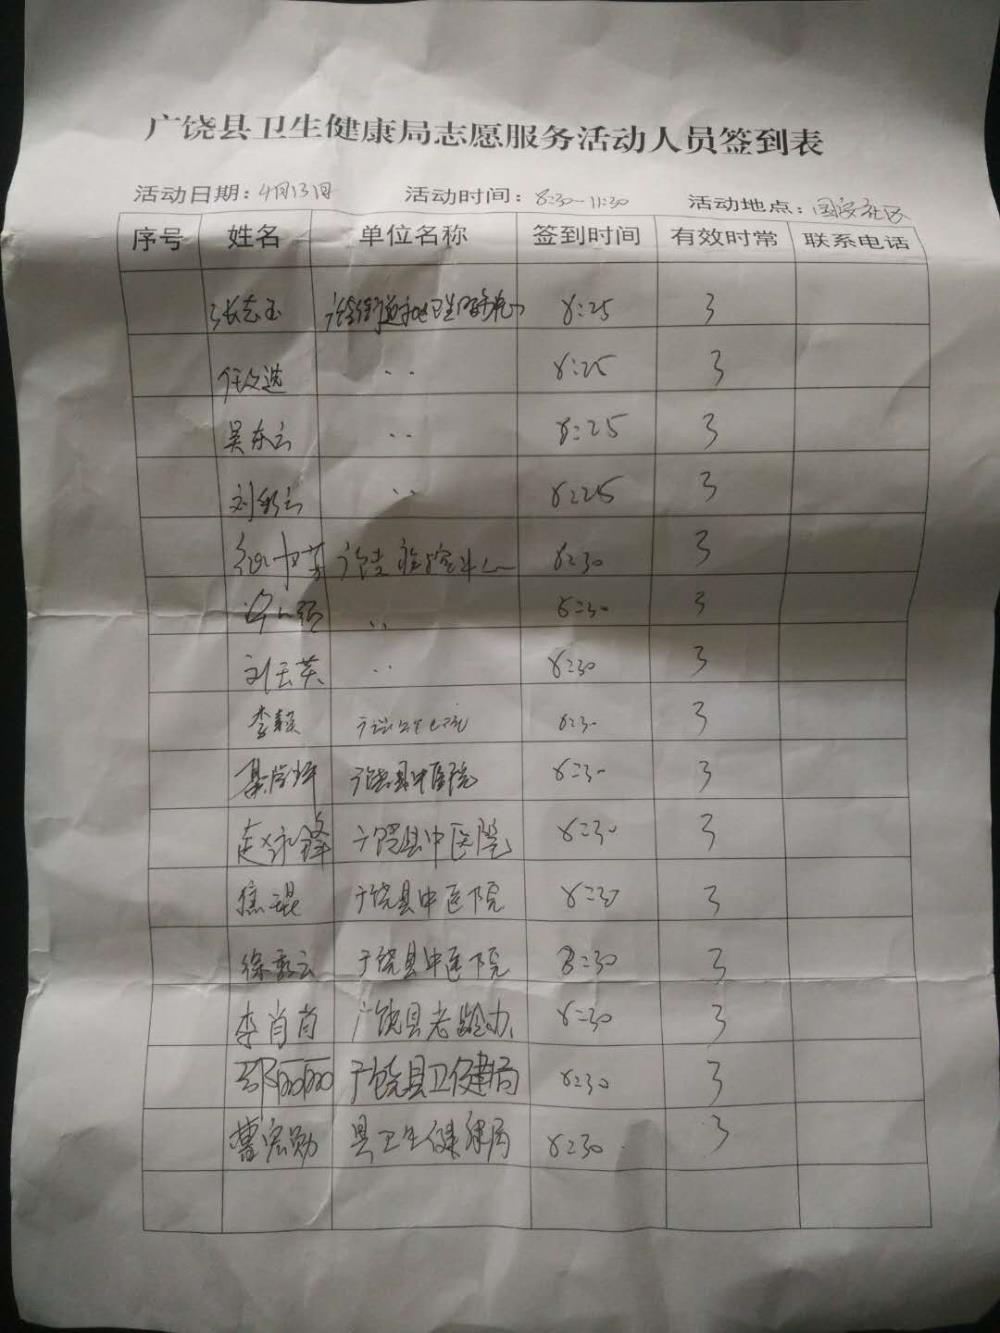 广饶县卫生健康局志愿服务活动人员签到表
活动日期：4月13日 活动时间：8:30-11:30 活动地点：国安社区
序号 姓名 单位名称 签到时间 有效时常 联系电话
张志玉 8:25 3
任文选 〃 8:25 3
吴东云 〃 8:25 3
刘彩云 〃 8:25 3
8:30 3
〃 8:30 3
刘玉英 〃 8:30 3
李颖 8:30 3
广饶县中医院 8:30 3
赵永锋 广饶县中医院 8:30 3
焦琨 广饶县中医院 8:30 3
徐秀云 广饶县中医院 8:30 3
李肖肖 广饶县老龄办 8:30 3
邵丽丽 广饶县卫健局 8:30 3
曹宏勋 县卫生健康局 8:30 3